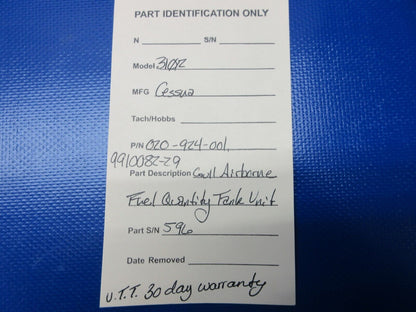 PART IDENTIFICATION ONLY
N S/N
Model 310R
MFG Cessna
Tach/Hobbs
P/N 020-924-001,
9910082-29
Part Description Gull Airborne
Fuel Quantity Tank Unit
Part S/N 596
Date Removed
U.T.T. 30 day warranty